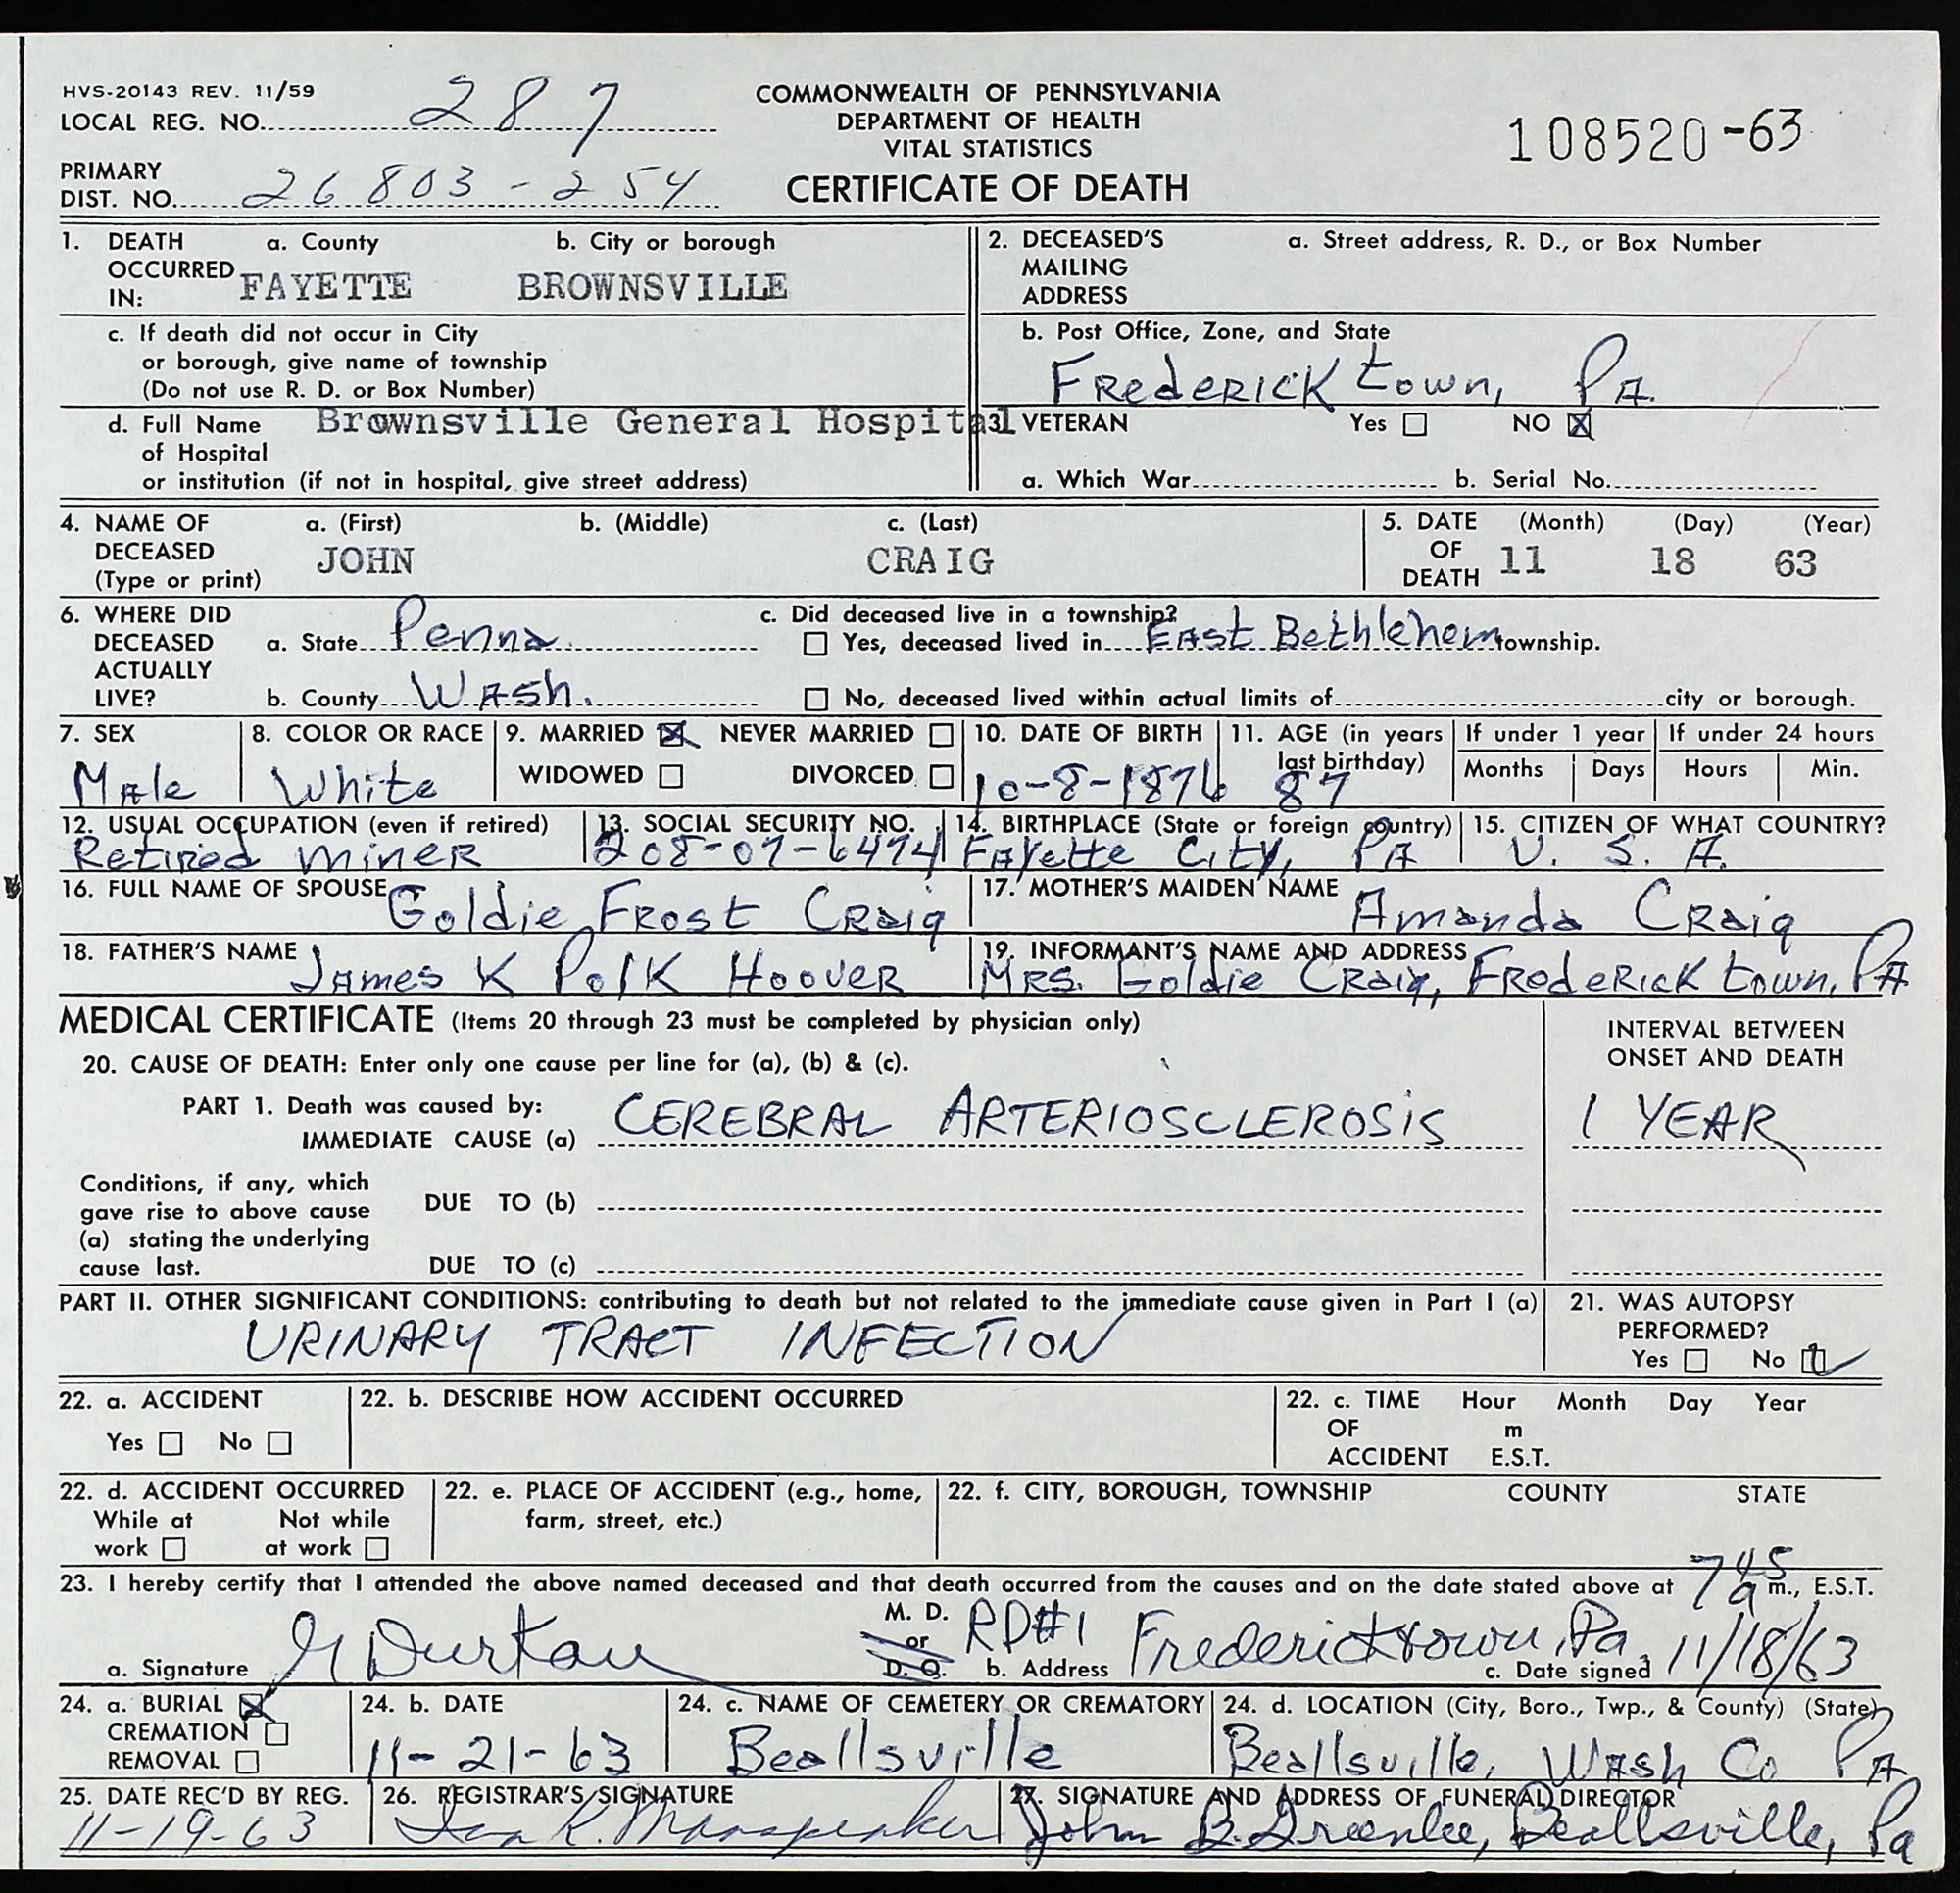 HVS-20143 REV. 11/59
LOCAL REG. NO. 287
COMMONWEALTH OF PENNSYLVANIA
DEPARTMENT OF HEALTH
VITAL STATISTICS
CERTIFICATE OF DEATH
108520-63
PRIMARY
DIST. NO. 26803-254
1. DEATH OCCURRED IN: a. County b. City or borough
FAYETTE BROWNSVILLE
c. If death did not occur in City
or borough, give name of township
(Do not use R. D. or Box Number)
d. Full Name Brownsville General Hospital
of Hospital
or institution (if not in hospital, give street address)
2. DECEASED'S MAILING ADDRESS a. Street address, R. D., or Box Number
b. Post Office, Zone, and State
Fredericktown, PA.
3. VETERAN Yes ☐ NO ☒
a. Which War b. Serial No.
4. NAME OF DECEASED (Type or print) a. (First) b. (Middle) c. (Last)
JOHN CRAIG
5. DATE OF DEATH (Month) (Day) (Year)
11 18 63
6. WHERE DID DECEASED ACTUALLY LIVE?
a. State Penna.
b. County Wash.
c. Did deceased live in a township?
☐ Yes, deceased lived in East Bethlehem township.
☐ No, deceased lived within actual limits of city or borough.
7. SEX
Male
8. COLOR OR RACE
White
9. MARRIED ☒ NEVER MARRIED ☐
WIDOWED ☐ DIVORCED ☐
10. DATE OF BIRTH
10-8-1876
11. AGE (in years last birthday)
87
If under 1 year If under 24 hours
Months Days Hours Min.
12. USUAL OCCUPATION (even if retired)
Retired Miner
13. SOCIAL SECURITY NO.
208-07-6474
14. BIRTHPLACE (State or foreign country)
Fayette City, PA
15. CITIZEN OF WHAT COUNTRY?
U. S. A.
16. FULL NAME OF SPOUSE Goldie Frost Craig
17. MOTHER'S MAIDEN NAME Amanda Craig
18. FATHER'S NAME James K Polk Hoover
19. INFORMANT'S NAME AND ADDRESS
Mrs. Goldie Craig, Fredericktown, PA
MEDICAL CERTIFICATE (Items 20 through 23 must be completed by physician only)
INTERVAL BETWEEN
ONSET AND DEATH
20. CAUSE OF DEATH: Enter only one cause per line for (a), (b) & (c).
PART 1. Death was caused by:
IMMEDIATE CAUSE (a) CEREBRAL ARTERIOSCLEROSIS 1 YEAR
Conditions, if any, which
gave rise to above cause
(a) stating the underlying
cause last.
DUE TO (b)
DUE TO (c)
PART II. OTHER SIGNIFICANT CONDITIONS: contributing to death but not related to the immediate cause given in Part I (a)
URINARY TRACT INFECTION
21. WAS AUTOPSY
PERFORMED?
Yes ☐ No ☑
22. a. ACCIDENT
Yes ☐ No ☐
22. b. DESCRIBE HOW ACCIDENT OCCURRED
22. c. TIME OF ACCIDENT Hour Month Day Year
m
E.S.T.
22. d. ACCIDENT OCCURRED
While at work ☐ Not while at work ☐
22. e. PLACE OF ACCIDENT (e.g., home,
farm, street, etc.)
22. f. CITY, BOROUGH, TOWNSHIP COUNTY STATE
23. I hereby certify that I attended the above named deceased and that death occurred from the causes and on the date stated above at 7 45 a m., E.S.T.
a. Signature Durkan
M. D. or D. O.
b. Address RD#1 Fredericktown, Pa.
c. Date signed 11/18/63
24. a. BURIAL ☒
CREMATION ☐
REMOVAL ☐
24. b. DATE
11-21-63
24. c. NAME OF CEMETERY OR CREMATORY
Beallsville
24. d. LOCATION (City, Boro., Twp., & County) (State)
Beallsville, Wash Co PA
25. DATE REC'D BY REG.
11-19-63
26. REGISTRAR'S SIGNATURE
K.
27. SIGNATURE AND ADDRESS OF FUNERAL DIRECTOR
John B. Greenlee, Beallsville, Pa